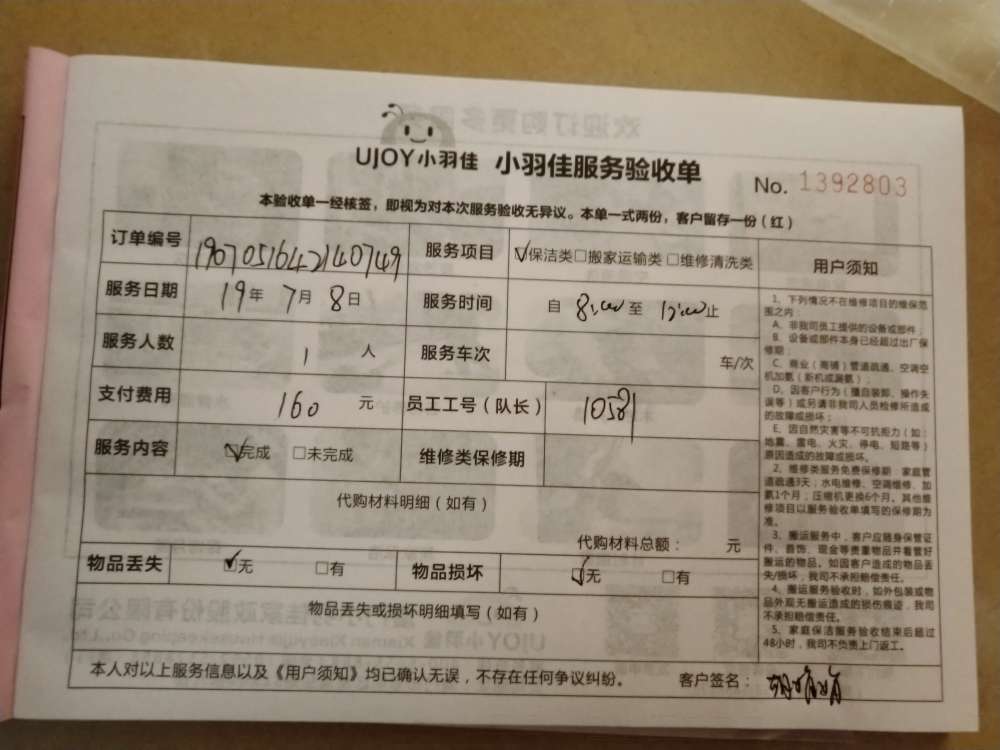 UJOY小羽佳 小羽佳服务验收单
No. 1392803
本验收单一经核签，即视为对本次服务验收无异议。本单一式两份，客户留存一份（红）
订单编号 1907051642140749 服务项目 ☑保洁类□搬家运输类□维修清洗类
服务日期 19年 7月 8日 服务时间 自 8:00 至 12:00 止
服务人数 1 人 服务车次 车/次
支付费用 160 元 员工工号（队长） 10581
服务内容 ☑完成 □未完成 维修类保修期
代购材料明细（如有）
代购材料总额： 元
物品丢失 ☑无 □有 物品损坏 ☑无 □有
物品丢失或损坏明细填写（如有）
本人对以上服务信息以及《用户须知》均已确认无误，不存在任何争议纠纷。 客户签名：
用户须知
1、下列情况不在维修项目的维保范
围之内：
A、非我司员工提供的设备或部件；
B、设备或部件本身已经超过出厂保
修期；
C、商业（商铺）管道疏通、空调空
机加氨（新机或漏氨）；
D、因客户行为（擅自装卸、操作失
误等）或另请非我司人员检修所造成
的故障或损坏；
E、因自然灾害等不可抗拒力（如：
地震、雷电、火灾、停电、短路等）
原因造成的故障或损坏。
2、维修类服务免费保修期 家庭管
道疏通3天；水电维修、空调维修、加
氨1个月；压缩机更换6个月。其他维
修项目以服务验收单填写的保修期为
准。
3、搬运服务中，客户应随身保管证
件、首饰、现金等贵重物品并看管好
搬运的物品。如因客户造成的物品丢
失/损坏，我司不承担赔偿责任。
4、搬运服务验收时，如外包装或物
品外观无搬运造成的损伤痕迹，我司
不承担赔偿责任。
5、家庭保洁服务验收结束后超过
48小时，我司不负责上门返工。